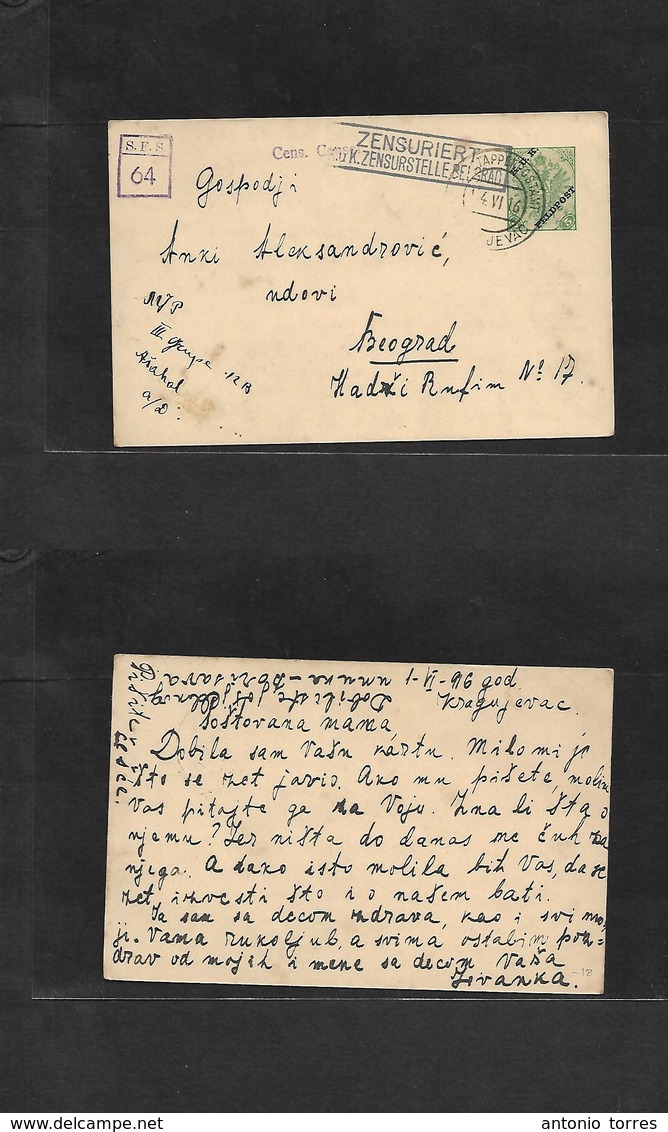 S. F. S
64
Cens.
ZENSURIERT
K. ZENSURSTELLE BELGRAD
4 VI 16
JEVAC
FELDPOST
Gospodji
Anki Aleksandrović,
udovi
Beograd
Hadži Rufim Nº 17.
III grupe
1-VI-916 god
Kragujevac.
Poštovana mama
Dobila sam Vašu kartu. Milo mi je
što se zet javio. Ako mu pišete, molim
Vas pitajte ga za Voju. Zna li šta o
njemu? Jer ništa do danas ne čuh za
njega. A tako isto molila bih Vas, da se
zet, izvesti što i o našem bati.
Ja sam sa decom zdrava, kao i svi mo-
ji. Vama rukoljub, a svima ostalim poz-
drav od mojih i mene sa decom Vaša
Živanka.
-18
www.delcampe.net
antonio torres